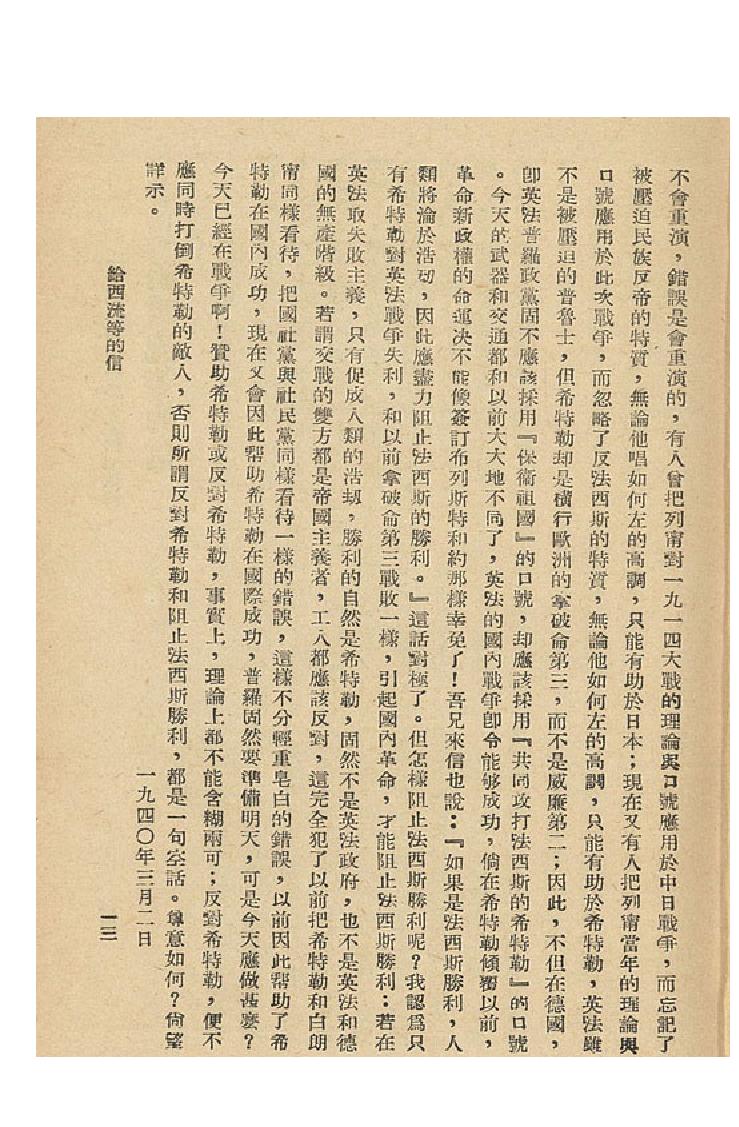 不會重演，錯誤是會重演的，有人曾把列甯對一九一四大戰的理論與口號應用於中日戰爭，而忘記了
被壓迫民族反帝的特質，無論他唱如何左的高調，只能有助於日本；現在又有人把列甯當年的理論與
口號應用於此次戰爭，而忽略了反法西斯的特質，無論他如何左的高調，只能有助於希特勒，英法雖
不是被壓迫的普魯士，但希特勒却是橫行歐洲的拿破侖第三，而不是威廉第二；因此，不但在德國，
卽英法普羅政黨固不應該採用『保衛祖國』的口號，却應該採用『共同攻打法西斯的希特勒』的口號
。今天的武器和交通都和以前大大地不同了，英法的國內戰爭卽令能够成功，倘在希特勒傾覆以前，
革命新政權的命運决不能像簽訂布列斯特和約那樣幸免了！吾兄來信也說：『如果是法西斯勝利，人
類將淪於浩刼，因此應盡力阻止法西斯的勝利。』這話對極了。但怎樣阻止法西斯勝利呢？我認爲只
有希特勒對英法戰爭失利，和以前拿破侖第三戰敗一樣，引起國內革命，才能阻止法西斯勝利：若在
英法取失敗主義，只有促成人類的浩刼，勝利的自然是希特勒，固然不是英法政府，也不是英法和德
國的無產階級。若謂交戰的雙方都是帝國主義者，工人都應該反對，這完全犯了以前把希特勒和白朗
甯同樣看待，把國社黨與社民黨同樣看待一樣的錯誤，這樣不分輕重皂白的錯誤，以前因此幫助了希
特勒在國內成功，現在又會因此幫助希特勒在國際成功，普羅固然要準備明天，可是今天應做甚麼？
今天已經在戰爭啊！贊助希特勒或反對希特勒，事實上，理論上都不能含糊兩可；反對希特勒，便不
應同時打倒希特勒的敵人，否則所謂反對希特勒和阻止法西斯勝利，都是一句空話。尊意如何？尙望
詳示。
一九四〇年三月二日
給西流等的信
一三